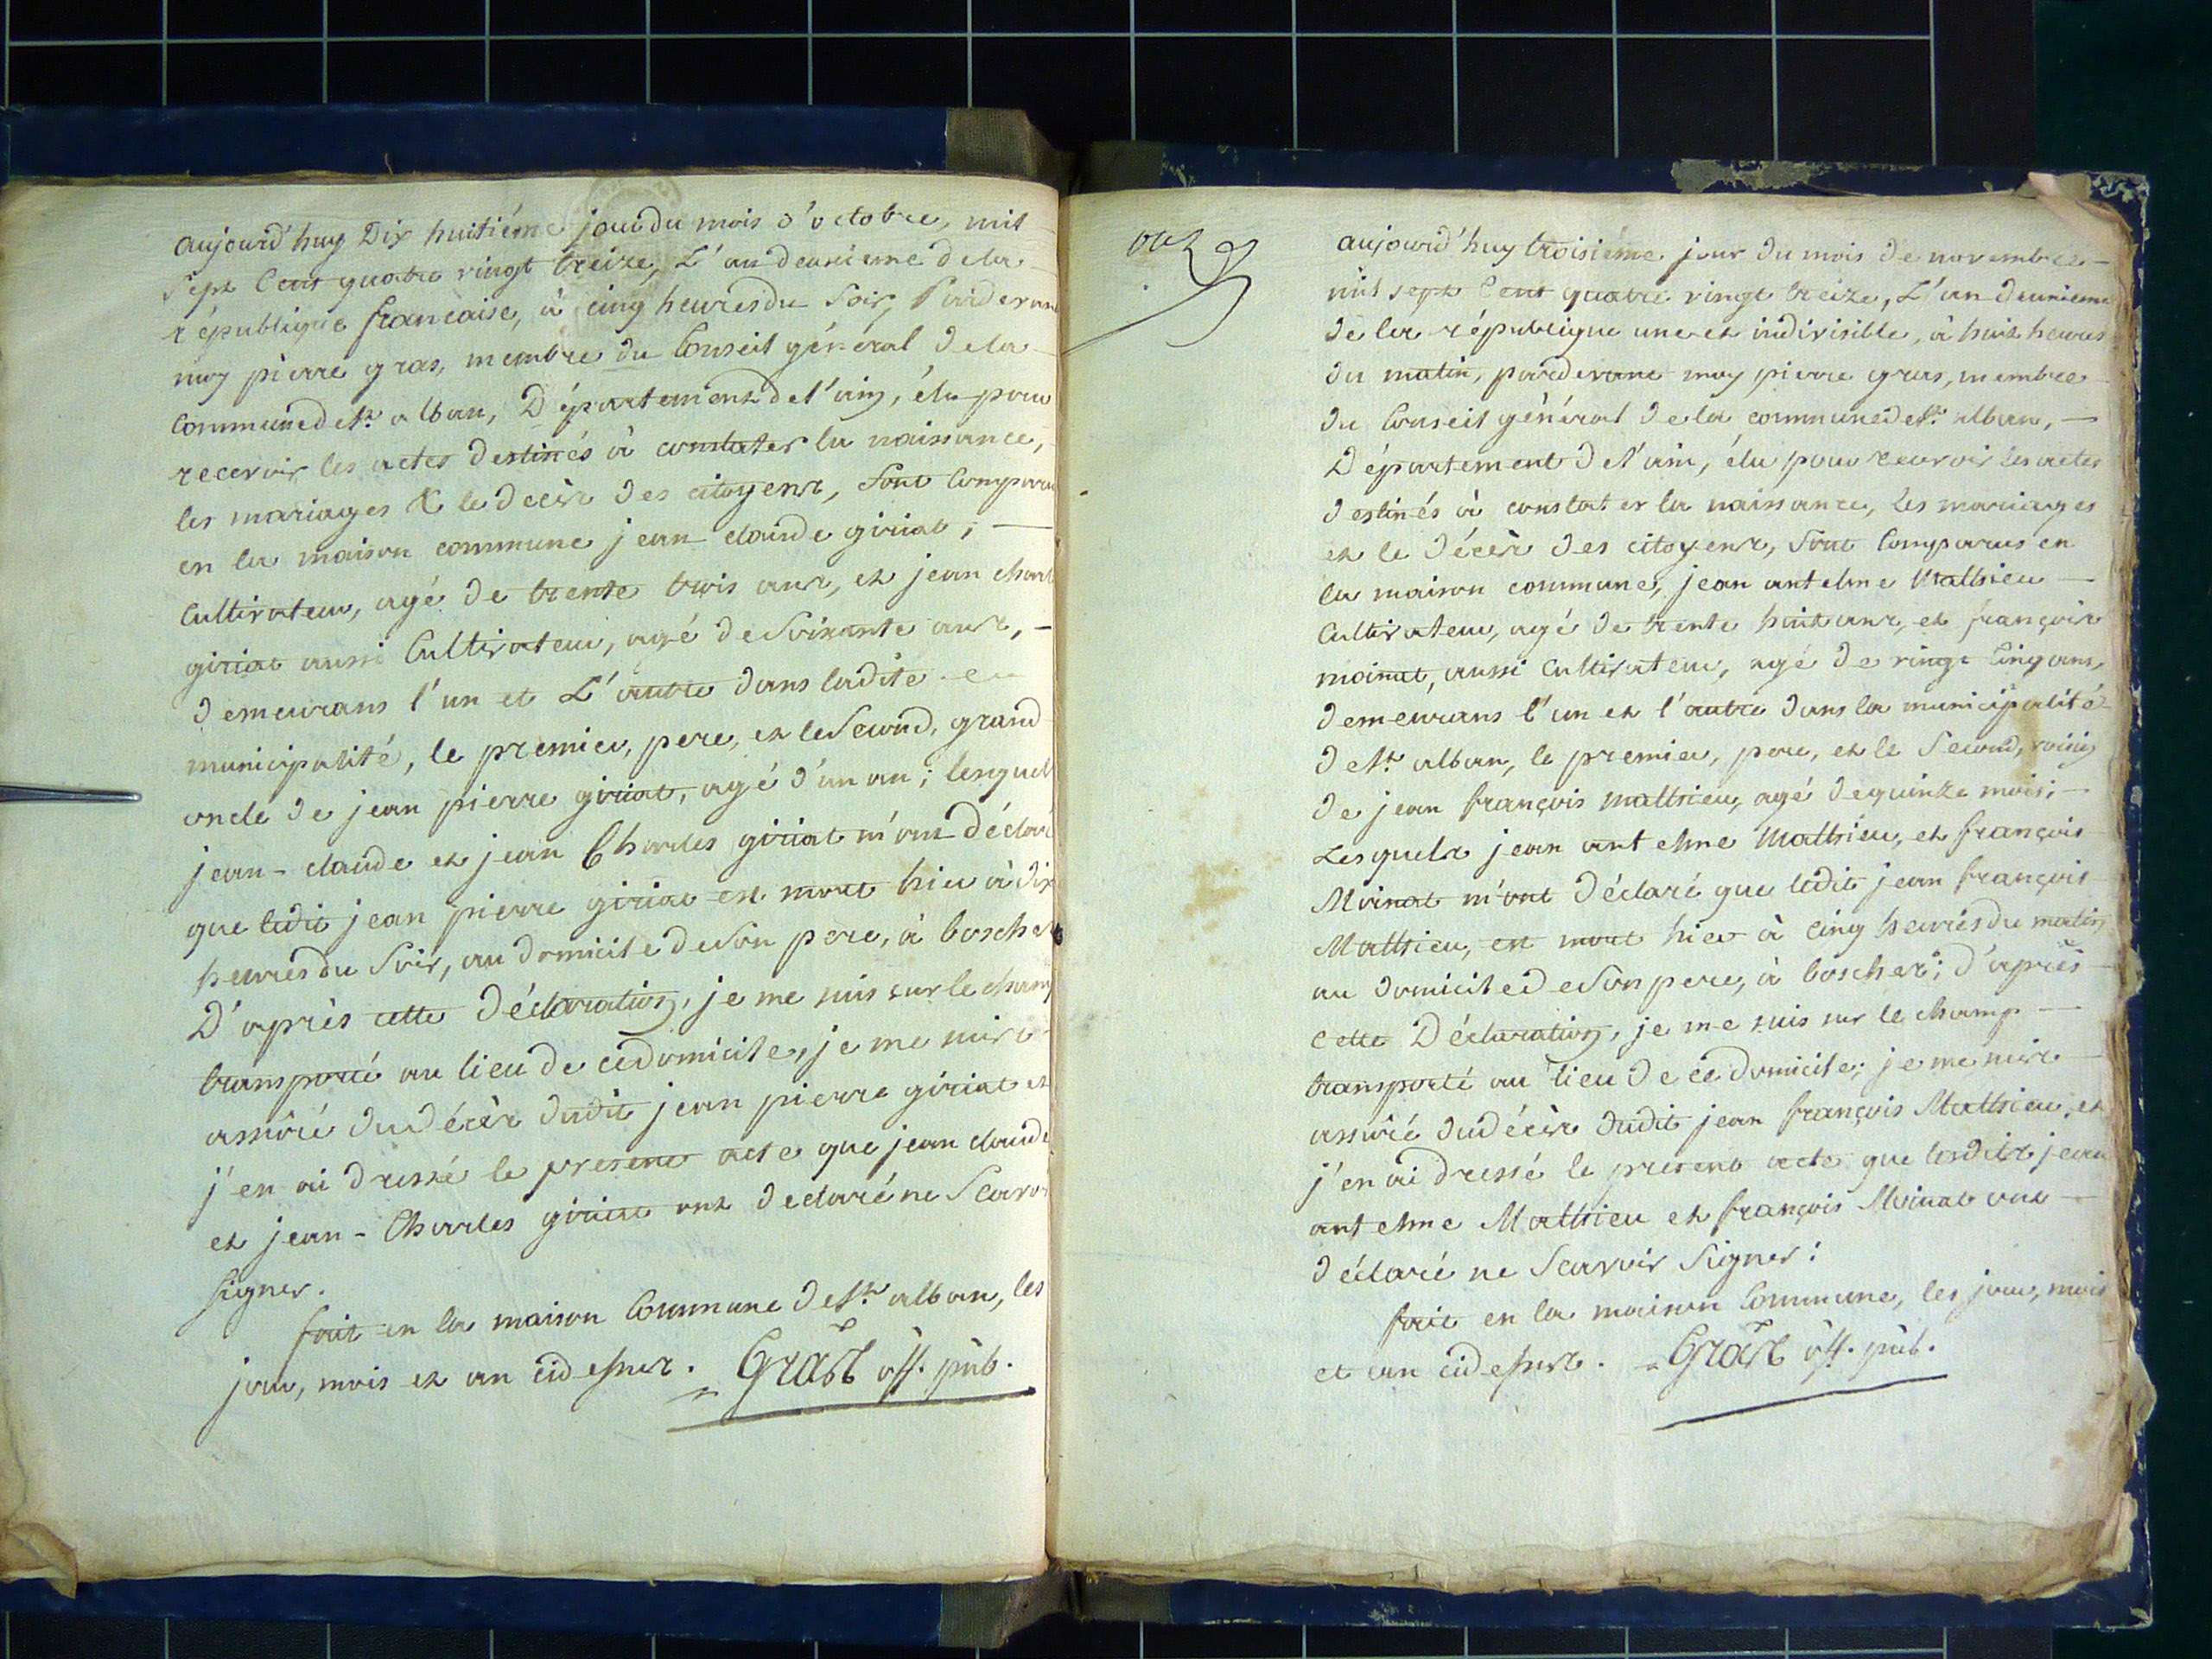 aujourd'huy Dix huitiéme jour du mois d'octobre, mil
Sept Cent quatre vingt treize, L'an deuxieme de la
république francaise, à cinq heures du Soir, Pardevant
moy pierre gras, membre du Conseil général de la
Commune de St. alban, Département de l'ain, élu pour
recevoir les actes destinés à constater la naissance,
les mariages & le décès des citoyens, Sont Comparus
en la maison commune jean claude giriat,
Cultivateur, agé de trente trois ans, et jean charles
giriat aussi Cultivateur, agé de Soixante ans,
demeurans l'un et L'autre dans ladite
municipalité, le premier, pere, et le Second, grand
oncle de jean pierre giriat, agé d'un an; lesquels
jean-claude et jean Charles giriat m'ont déclaré
que ledit jean pierre giriat est mort hier à dix
heures du Soir, au domicile de Son pere, à boscher
D'après cette déclaration, je me suis sur le champ
transporté au lieu de ce domicile, je me suis
assûré du décès dudit jean pierre giriat et
j'en ai dressé le present acte que jean claude
et jean-Charles giriat ont declaré ne Scavoir
signer.
fait en la maison Commune de St. alban, les
jour, mois et an cidessus. Grass off. pub.
onz
aujourd'huy troisiéme jour du mois de novembre
mil sept Cent quatre vingt treize, L'an deuxieme
de la république une et indivisible, à huit heures
du matin, pardevant moy pierre gras, membre
du Conseil général de la commune de St. alban,
Département de l'ain, élu pour recevoir les actes
destinés à constater la naissance, les mariages
et le décès des citoyens, Sont Comparus en
la maison commune, jean antelme Mathieu
Cultivateur, agé de trente huit ans, et françois
moinat, aussi Cultivateur, agé de vingt Cinq ans,
demeurans l'un et l'autre dans la municipalité
de St. alban, le premier, pere, et le Second, voisin
de jean françois mathieu, agé de quinze mois;
Lesquels jean antelme Mathieu, et françois
Moinat m'ont déclaré que ledit jean françois
Mathieu, est mort hier à cinq heures du matin
au domicile de Son pere, à boscher; d'après
cette Déclaration, je me suis sur le champ
transporté au lieu de ce domicile; je me suis
assûré du décès dudit jean françois Mathieu, et
j'en ai dressé le present acte que lesdits jean
antelme Mathieu et françois Moinat ont
déclaré ne Scavoir Signer:
fait en la maison Commune, les jour, mois
et an cidessus. Grass off. pub.